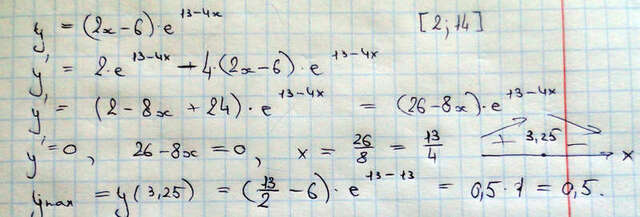 y = (2x-6)·e^{13-4x} [2; 14]
y' = 2·e^{13-4x} - 4·(2x-6)·e^{13-4x}
y' = (2 - 8x + 24)·e^{13-4x} = (26-8x)·e^{13-4x}
y' = 0, 26-8x = 0, x = 26/8 = 13/4 + 3,25 - x
y_{max} = y(3,25) = (13/2 - 6)·e^{13-13} = 0,5·1 = 0,5.